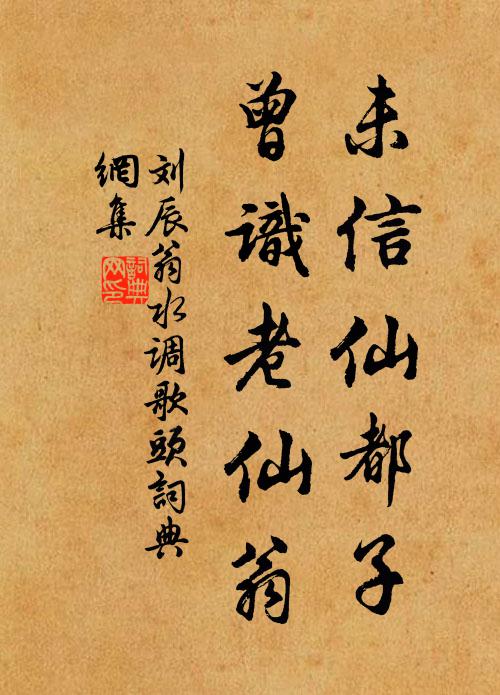 未信仙都子
曾識老仙翁
刘辰翁水调歌頭詞典
網集
詞典
网印